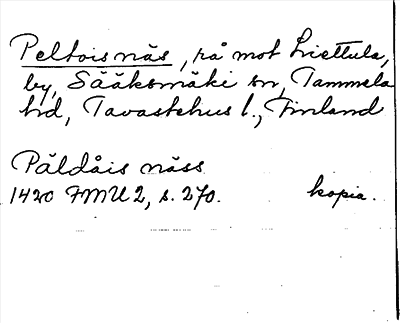 Peltoisnäs, rå mot Liettula,
by, Sääksmäki sn, Tammela
hd, Tavastehus l., Finland
Päldåis näss
1420 FMU 2, s. 270. kopia.